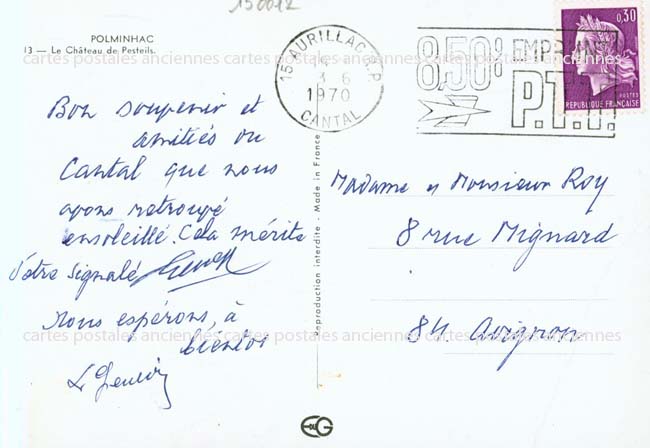 150012
POLMINHAC
13 - Le Château de Pesteils.
Bon souvenir et
amitiés du
Cantal que nous
avons retrouvé
ensoleillé. Cela mérite
d'être signalé
Nous espérons, à
bientôt
15 AURILLAC R.P.
3-6
1970
CANTAL
8,50% EMPRUNT
P.T.T.
0,30
POSTES
REPUBLIQUE FRANÇAISE
Reproduction interdite - Made in France
Madame et Monsieur Roy
8 rue Mignard
84 Avignon
cartes postales anciennes cartes postales anciennes cartes postales anciennes
cartes postales anciennes cartes postales anciennes cartes postales anciennes
EG